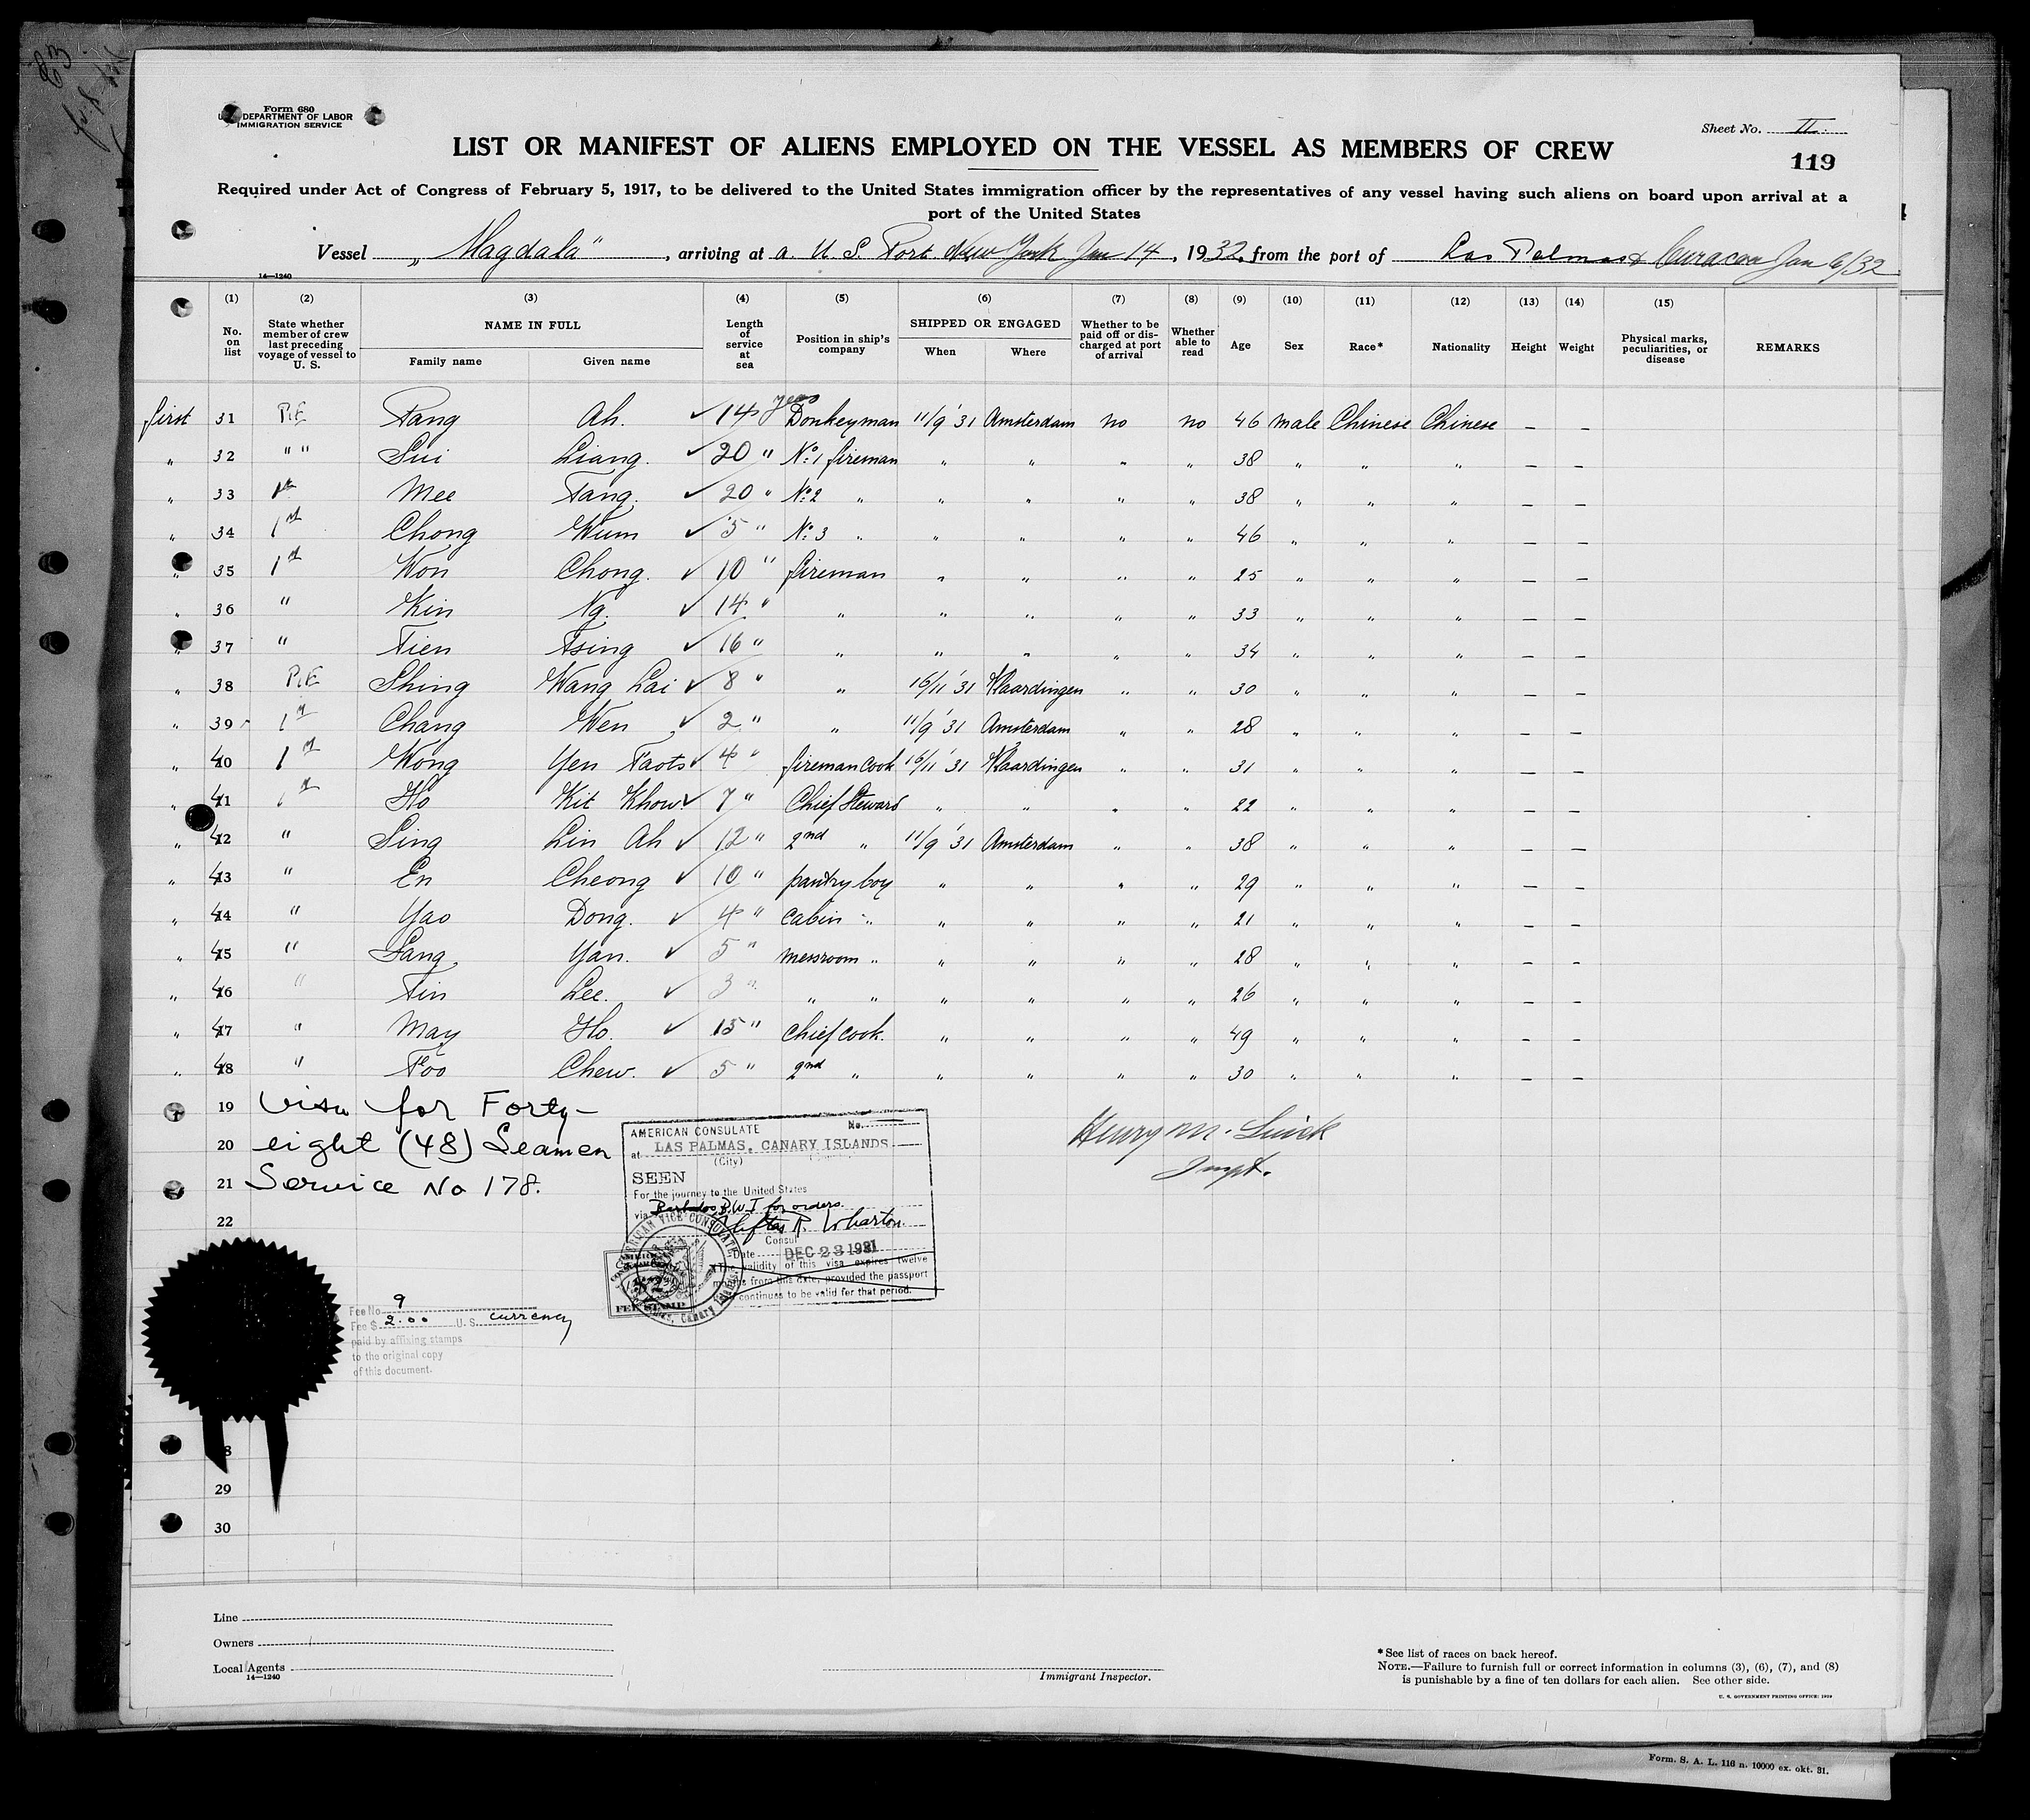 Form 680
U. S. DEPARTMENT OF LABOR
IMMIGRATION SERVICE
Sheet No. II.
LIST OR MANIFEST OF ALIENS EMPLOYED ON THE VESSEL AS MEMBERS OF CREW
119
Required under Act of Congress of February 5, 1917, to be delivered to the United States immigration officer by the representatives of any vessel having such aliens on board upon arrival at a
port of the United States
Vessel „Magdala" , arriving at a U. S. Port New York Jan 14 , 1932, from the port of Las Palmas & Curacao Jan 6/32
14—1240
(1) (2) (3) (4) (5) (6) (7) (8) (9) (10) (11) (12) (13) (14) (15)
No. on list State whether member of crew last preceding voyage of vessel to U. S. NAME IN FULL Family name Given name Length of service at sea Position in ship's company SHIPPED OR ENGAGED When Where Whether to be paid off or discharged at port of arrival Whether able to read Age Sex Race* Nationality Height Weight Physical marks, peculiarities, or disease REMARKS
first 31 P.E. Pang Ah. ✓ 14 years Donkeyman 11/9 '31 Amsterdam no no 46 male Chinese Chinese — —
" 32 " " Sui Liang. ✓ 20 " No. 1 fireman " " " " 38 " " " — —
" 33 1st Mee Tang. ✓ 20 " No. 2 " " " " " 38 " " " — —
" 34 1st Chong Wum ✓ 5 " No. 3 " " " " " 46 " " " — —
" 35 1st Won Chong. ✓ 10 " fireman " " " " 25 " " " — —
" 36 " Kin Ng. ✓ 14 " " " " " " 33 " " " — —
" 37 " Tien Tsing ✓ 16 " " " " " " 34 " " " — —
" 38 P.E. Shing Wang Lai ✓ 8 " " 16/11 '31 Vlaardingen " " 30 " " " — —
" 39 1st Chang Wen ✓ 2 " " 11/9 '31 Amsterdam " " 28 " " " — —
" 40 1st Wong Yen Taots ✓ 4 " fireman cook 16/11 '31 Vlaardingen " " 31 " " " — —
" 41 1st Ho Kit Khow. ✓ 7 " Chief Steward " " " " 22 " " " — —
" 42 " Sing Lin Ah ✓ 12 " 2nd " 11/9 '31 Amsterdam " " 38 " " " — —
" 43 " En Cheong ✓ 10 " pantry boy " " " " 29 " " " — —
" 44 " Yao Dong. ✓ 4 " cabin " " " " " 21 " " " — —
" 45 " Sang. Yan. ✓ 5 " messroom " " " " " 28 " " " — —
" 46 " Tin Lee. ✓ 3 " " " " " " " 26 " " " — —
" 47 " May Ho. ✓ 15 " Chief cook. " " " " 49 " " " — —
" 48 " Foo Chew. ✓ 5 " 2nd " " " " " 30 " " " — —
19 Visa for Forty-
20 eight (48) Seamen
21 Service No 178.
22
Henry M.
Inspt.
AMERICAN CONSULATE No.
at LAS PALMAS, CANARY ISLANDS
(City)
SEEN
For the journey to the United States
via Barbados, B.W.I for orders
R. Wharton
Consul
Date DEC 23 1931
The validity of this visa expires twelve
months from this date, provided the passport
continues to be valid for that period.
AMERICAN VICE CONSULATE
Las Palmas, Canary Islands
FEE STAMP
Fee No. 9
Fee $ 2.00 U. S. currency
paid by affixing stamps
to the original copy
of this document.
8
29
30
Line
Owners
Local Agents
14—1240
Immigrant Inspector.
*See list of races on back hereof.
NOTE.—Failure to furnish full or correct information in columns (3), (6), (7), and (8)
is punishable by a fine of ten dollars for each alien. See other side.
U. S. GOVERNMENT PRINTING OFFICE: 1929
Form. S. A. L. 116 n. 10000 ex. okt. 31.